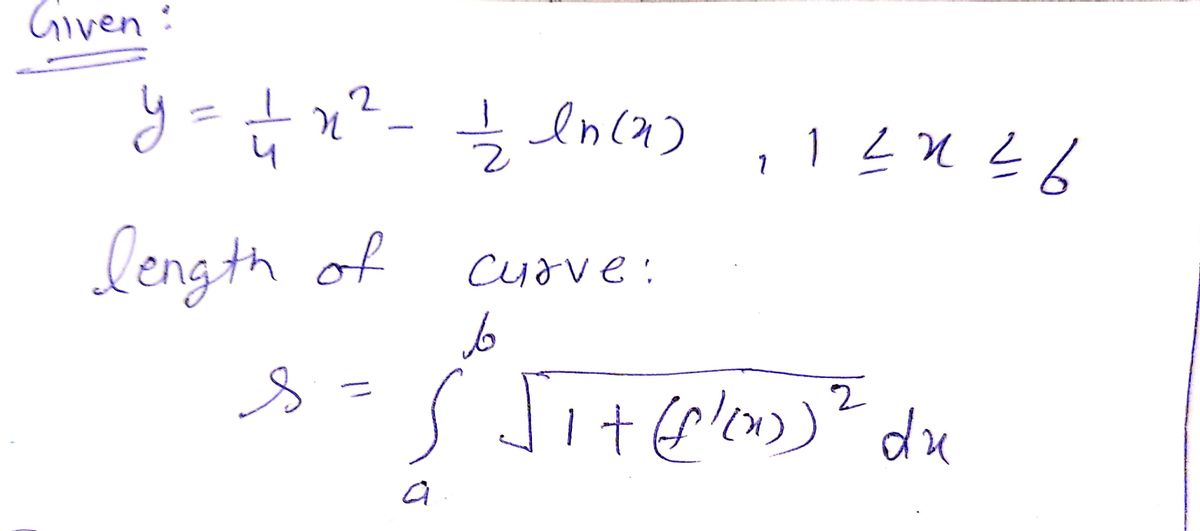 Given :
y = 1/4 x² - 1/2 ln(x) , 1 ≤ x ≤ 6
length of curve:
s = ∫ₐᵇ √(1 + (f'(x))²) dx